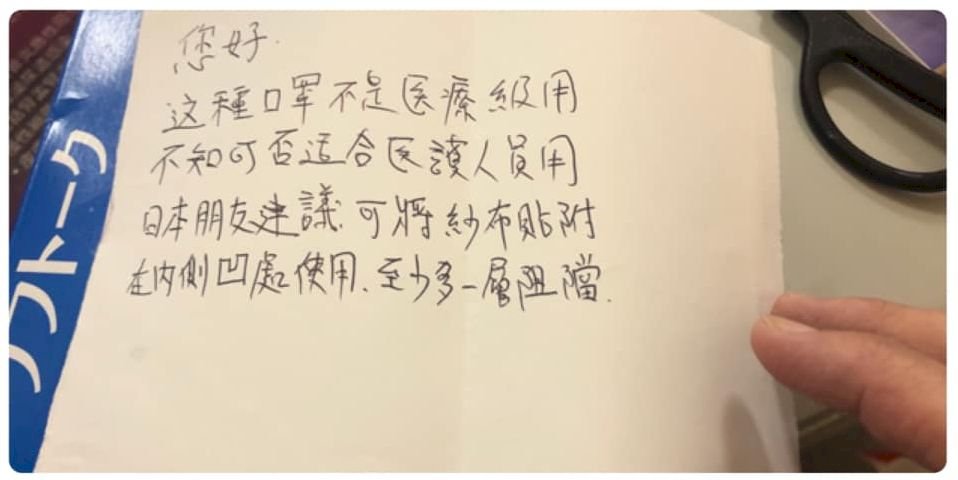 您好.
这種口罩不是医療級用
不知可否适合医護人員用
日本朋友建議.可將紗布貼附
在内側凹處使用.至少多一層阻擋.
ソフトーク